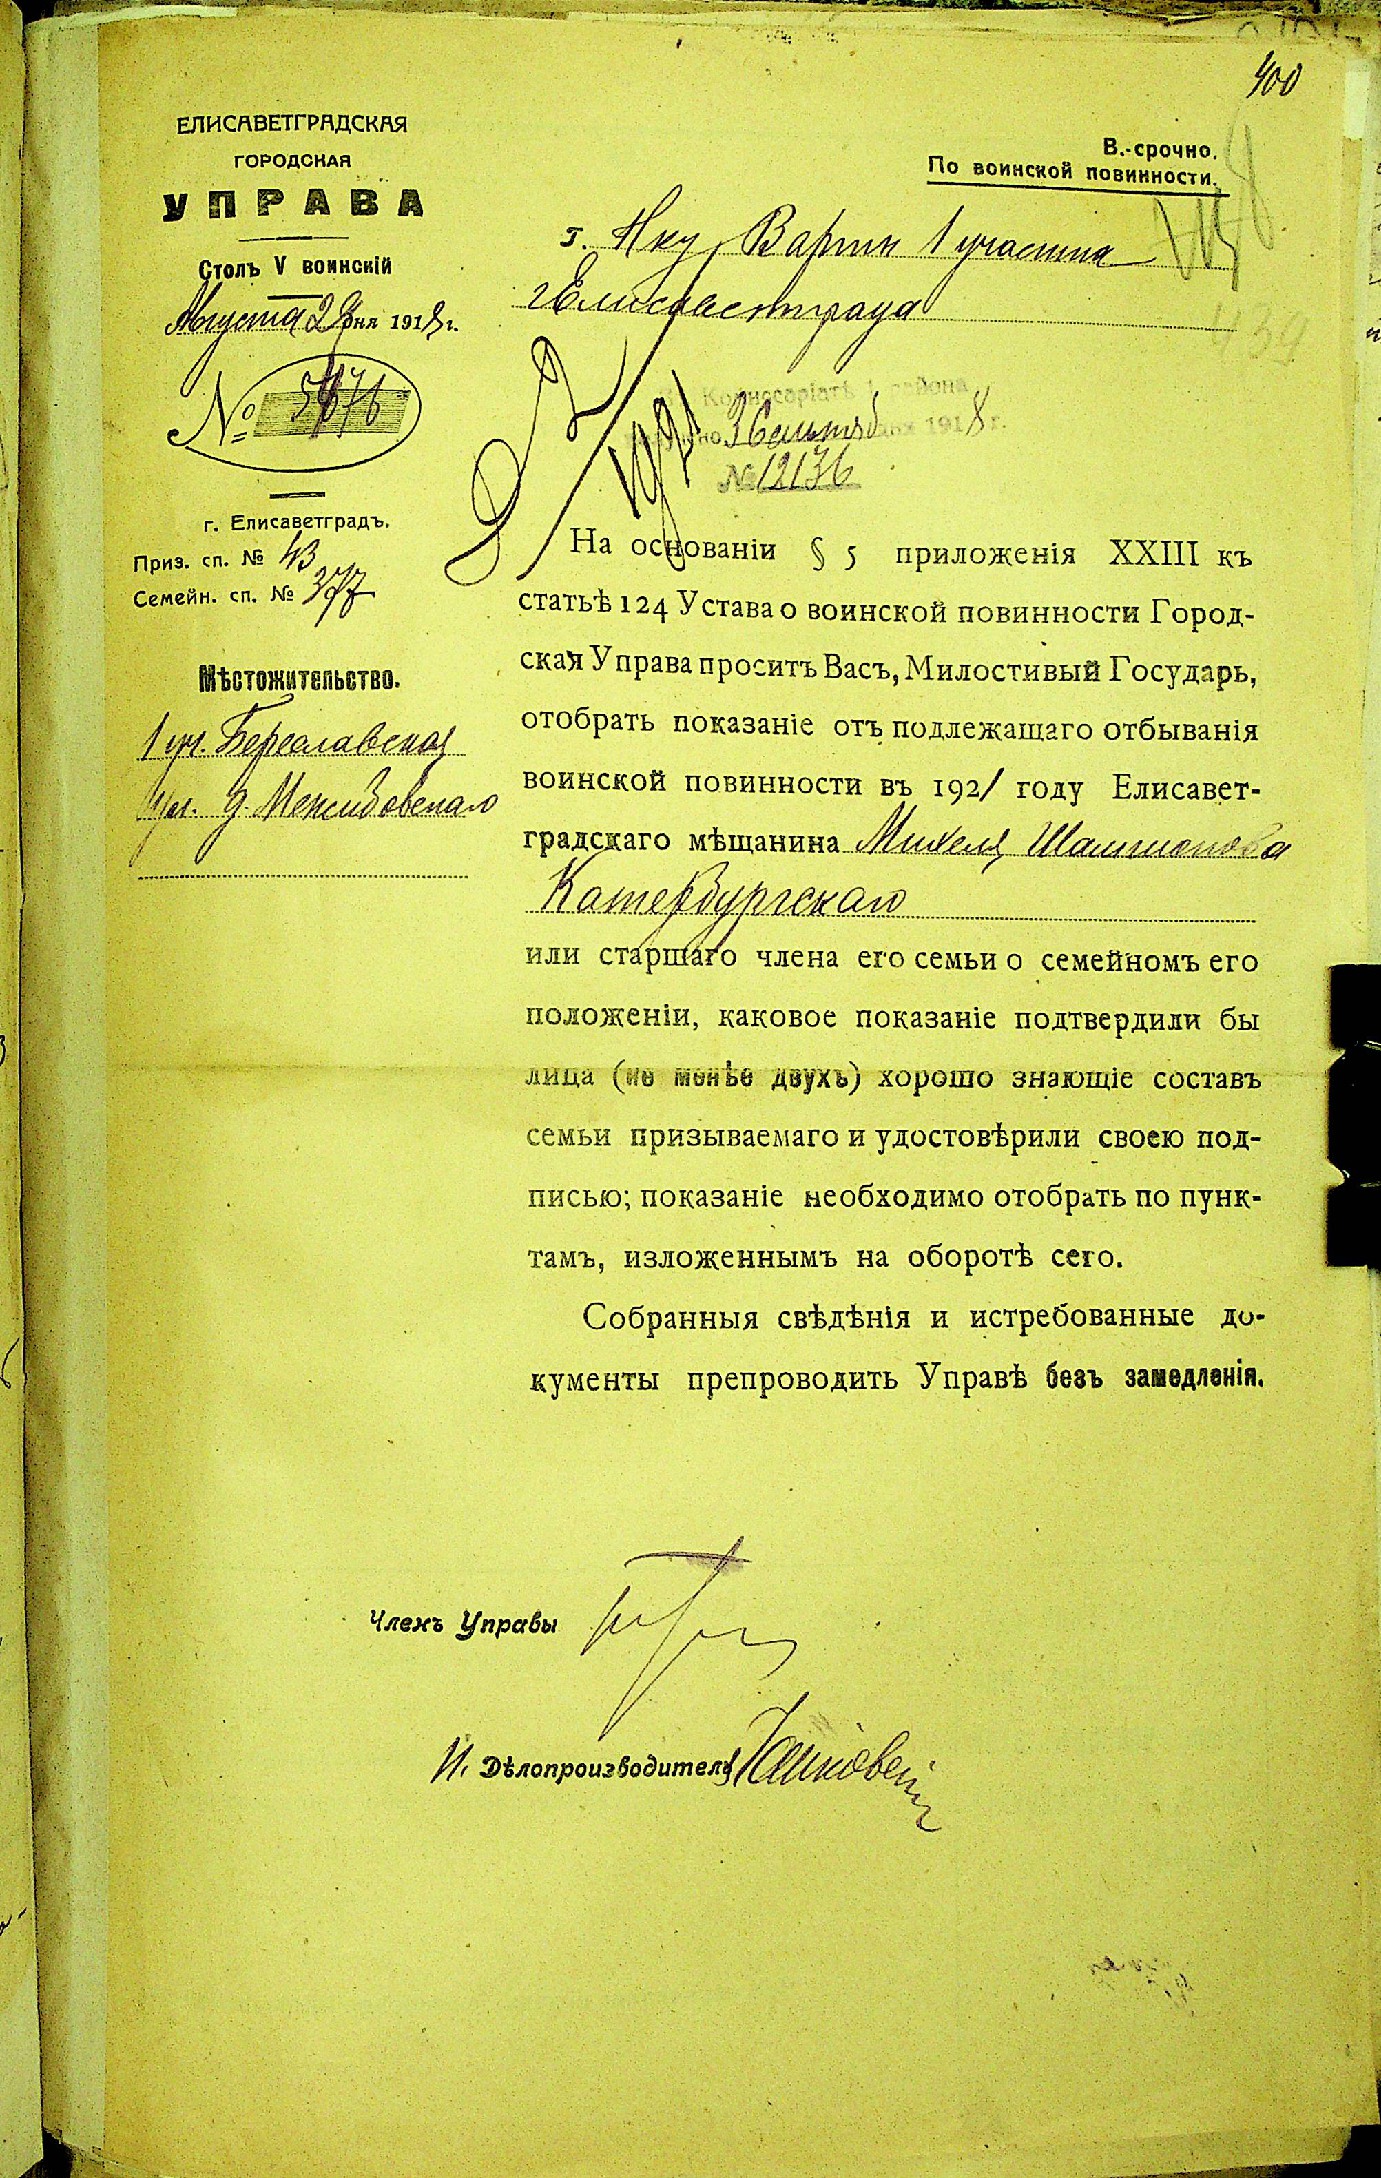 400
ЕЛИСАВЕТГРАДСКАЯ
ГОРОДСКАЯ
УПРАВА
Столъ V воинскій
Августа 28 дня 1918 г.
№ 5676
г. Елисаветградъ.
Приз. сп. № 43
Семейн. сп. № 377
Мѣстожительство.
1 уч. Береславская
ул. д.
В.-срочно.
По воинской повинности.
г. Нку Варты 1 участка
г Елисаветграда
459
Комиссаріатѣ 1 района
3 Сентяб дня 1918 г.
№ 12136
На основаніи § 5 приложенія XXIII къ
статьѣ 124 Устава о воинской повинности Город-
ская Управа проситъ Васъ, Милостивый Государь,
отобрать показаніе отъ подлежащаго отбыванія
воинской повинности въ 1921 году Елисавет-
градскаго мѣщанина Михеля
Катербургскаго
или старшаго члена его семьи о семейномъ его
положеніи, каковое показаніе подтвердили бы
лица (не менѣе двухъ) хорошо знающіе составъ
семьи призываемаго и удостовѣрили своею под-
писью; показаніе необходимо отобрать по пунк-
тамъ, изложеннымъ на оборотѣ сего.
Собранныя свѣдѣнія и истребованные до-
кументы препроводить Управѣ безъ замедленія.
Членъ Управы
И. Дѣлопроизводителя